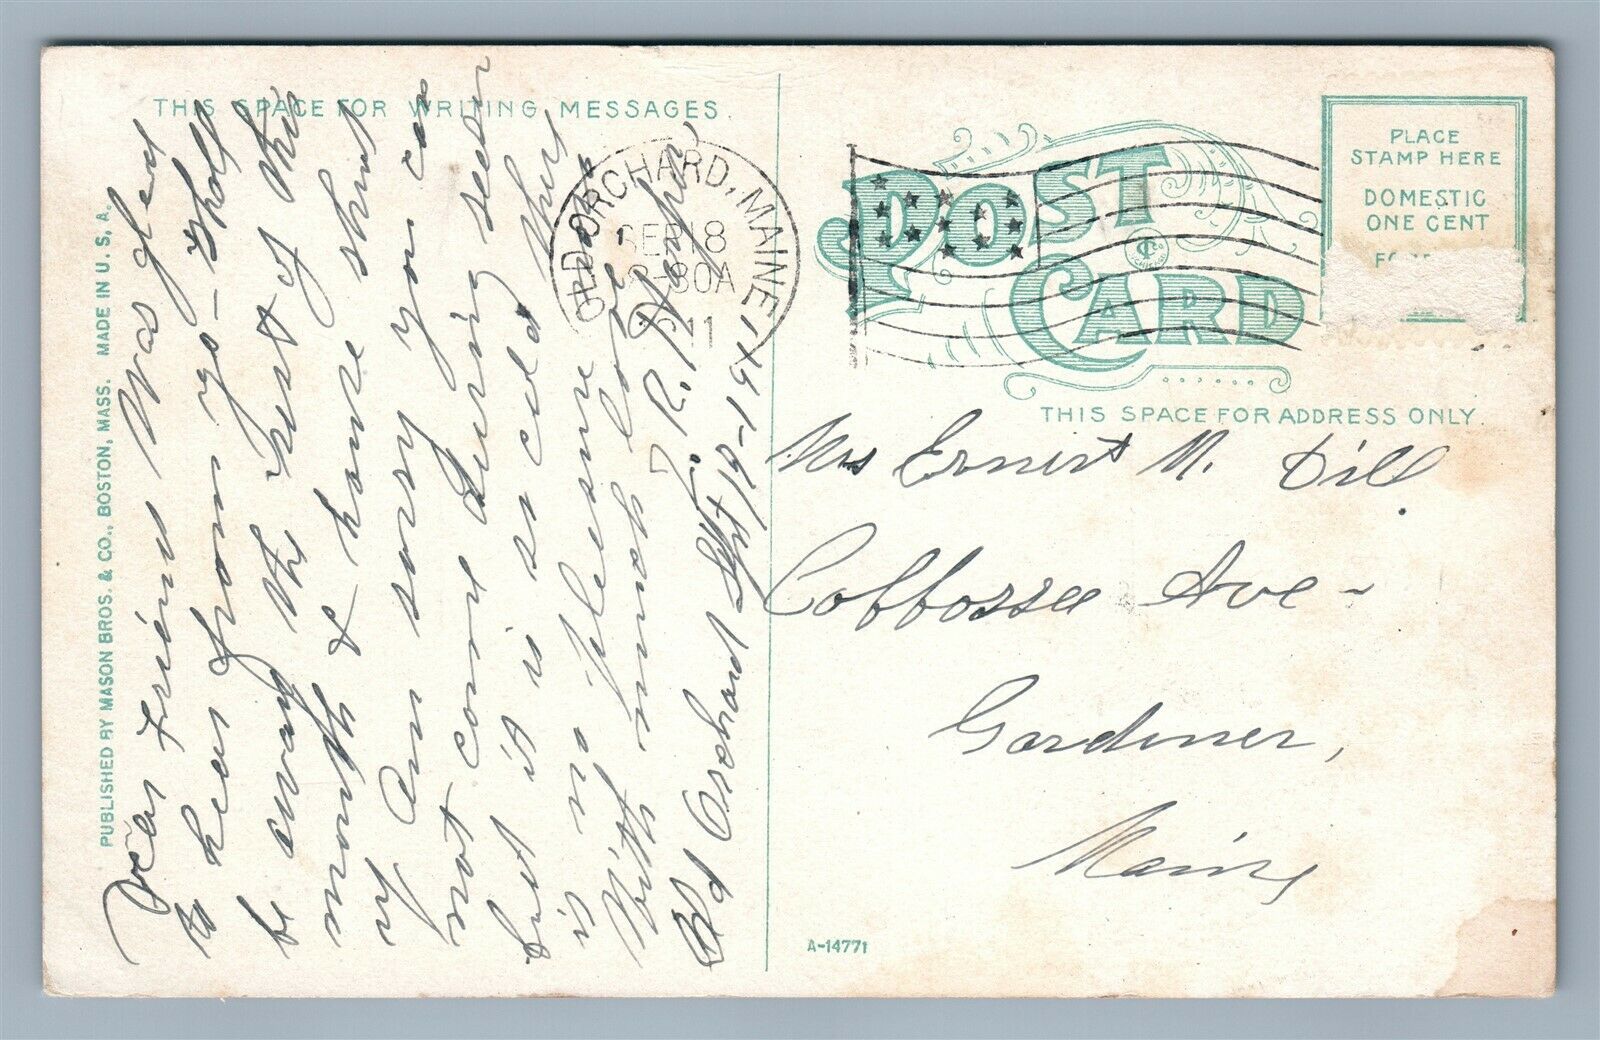 THIS SPACE FOR WRITING MESSAGES.
PUBLISHED BY MASON BROS. & CO., BOSTON, MASS. MADE IN U. S. A.
Dear Friend Was glad
to hear from you - shall
be away the rest of this
month & house shut
up
Am sorry you can
not come during
but it is so cold there
is no pleasure
With much love
Old Orchard Sept 19-19XI
OLD ORCHARD, MAINE
SEP 18
-30A
1911
POST CARD
PLACE
STAMP HERE
DOMESTIC
ONE CENT
THIS SPACE FOR ADDRESS ONLY.
Mrs Ernest M. Dill
Cobbossee Ave-
Gardiner,
Maine
A-14771